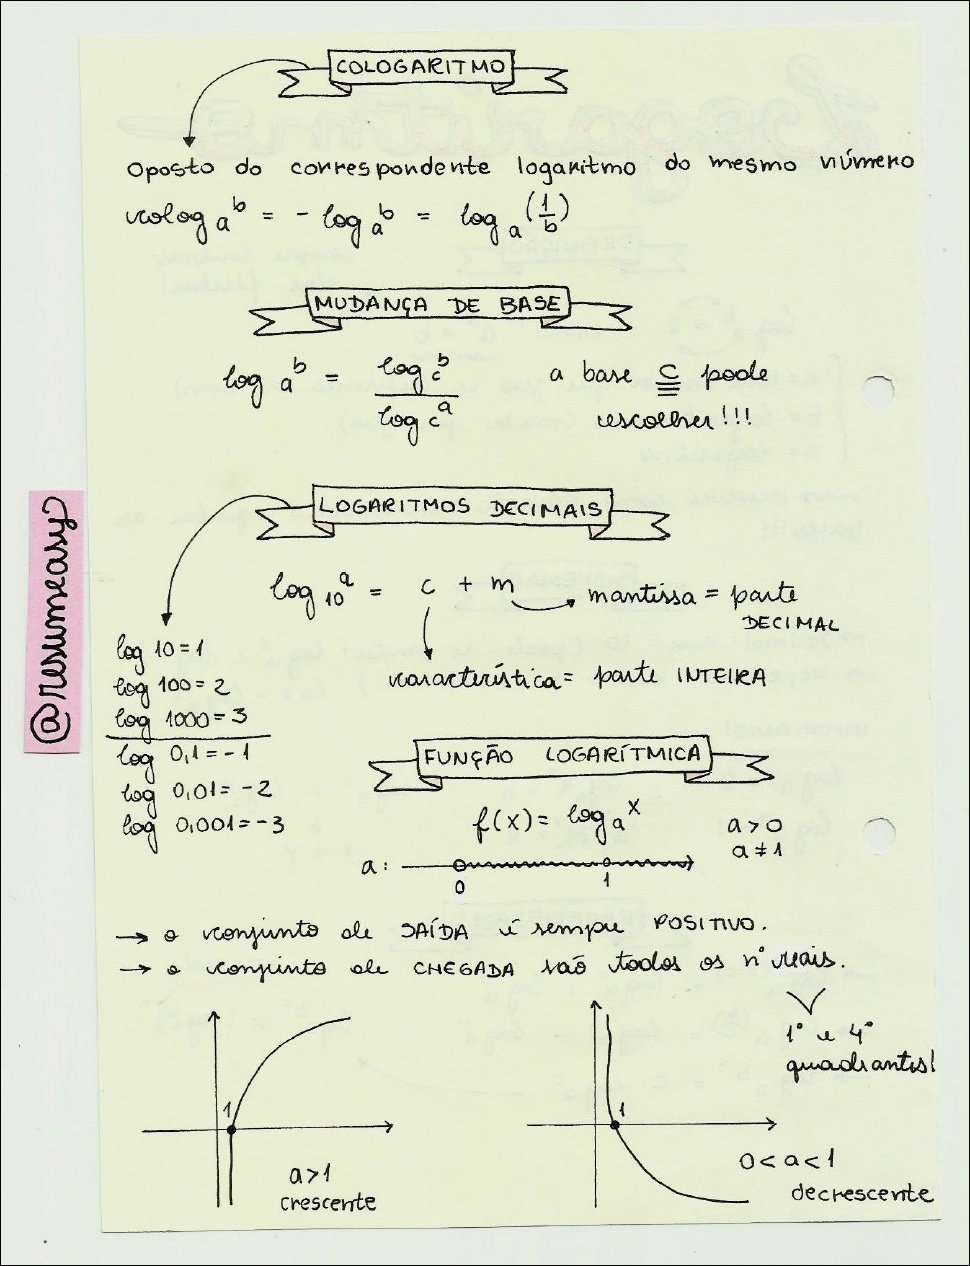 COLOGARITMO
Oposto do correspondente logaritmo do mesmo número
colog a^b = - log a^b = log a (1/b)
MUDANÇA DE BASE
log a^b = log c^b / log c^a
a base c pode
escolher!!!
LOGARITMOS DECIMAIS
log 10^a = c + m
mantissa = parte
DECIMAL
característica = parte INTEIRA
log 10 = 1
log 100 = 2
log 1000 = 3
log 0,1 = -1
log 0,01 = -2
log 0,001 = -3
@resumeasy
FUNÇÃO LOGARÍTMICA
f(x) = log a^x
a > 0
a ≠ 1
a:
0
1
→ o conjunto de SAÍDA é sempre POSITIVO.
→ o conjunto de CHEGADA são todos os nº reais.
1º e 4º
quadrantes!
1
a > 1
crescente
1
0 < a < 1
decrescente